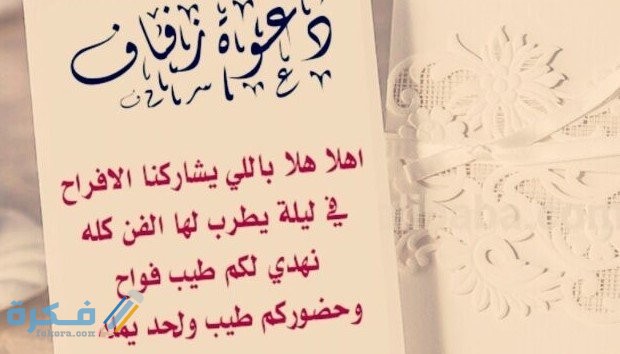 دعوة زفاف
اهلا هلا باللي يشاركنا الافراح
في ليلة يطرب لها الفن كله
نهدي لكم طيب فواح
وحضوركم طيب ولحد يمله
فكرة
fekera.com